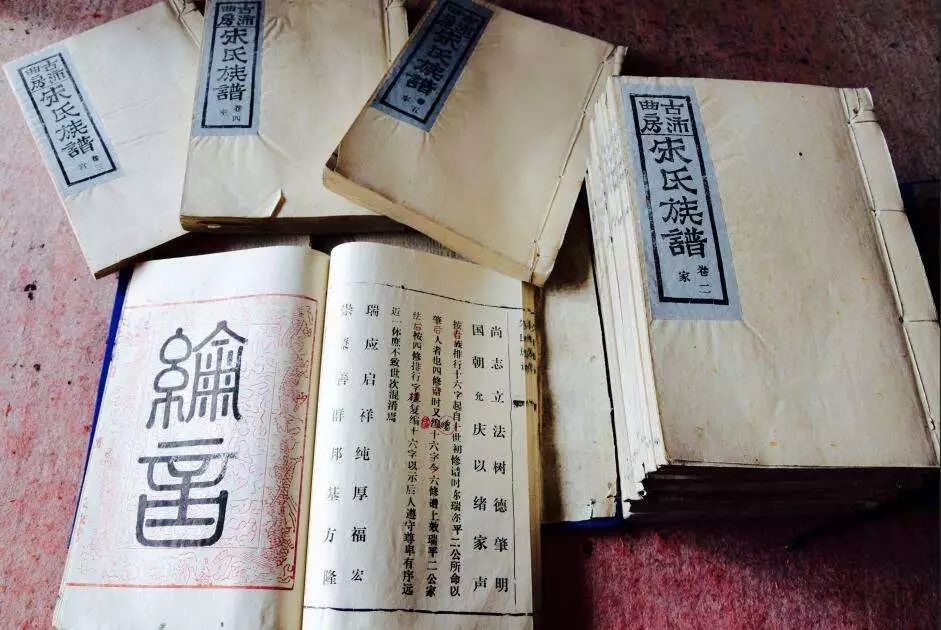 古沛
曲房
宋氏族譜
卷三
宫
古沛
曲房
宋氏族譜
卷四
古沛
曲房
宋氏族譜
古沛
曲房
宋氏族譜
卷二
家
尚志立法树德肇明
国朝允庆以绪家声
按族排行十六字起自十世初修谱时东瑞东平二公所命以
肇后人者也四修谱时又十六字今六修谱上敦瑞平二公家
法后按四修排行字复编十六字以示后人遵守尊卑有序远
近休庶不致世次混淆焉
瑞应启祥纯厚福宏
崇善群邦基方隆
綸